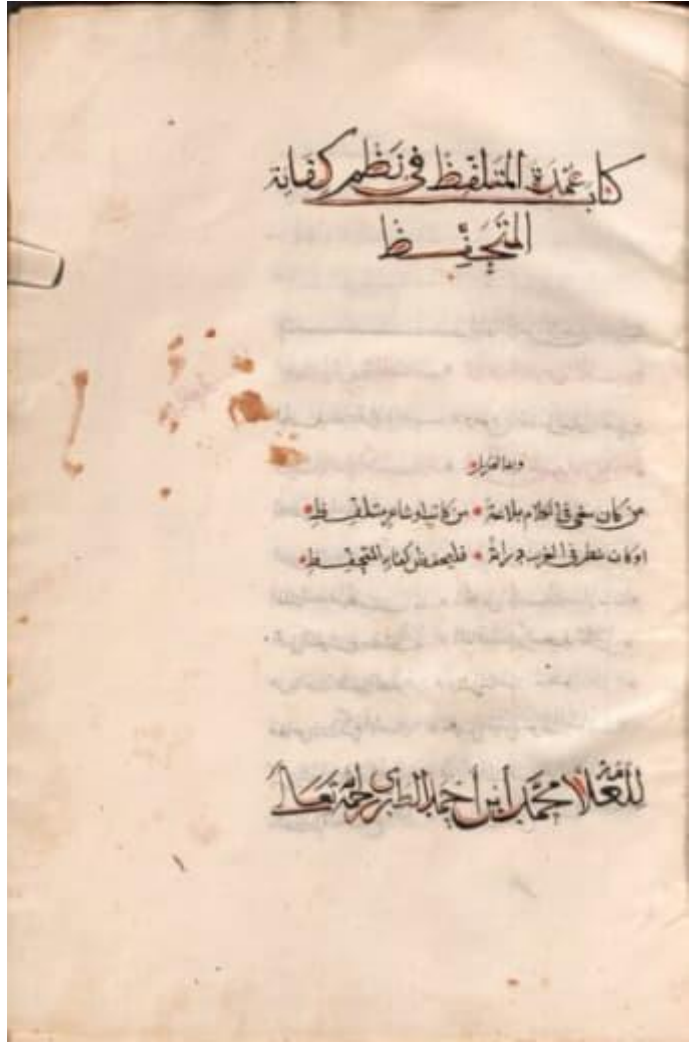 كتاب عمدة المتلفظ في نظم كفاية
المتحفظ
من كان يبغي في الكلام بلاغة • من كاتب او شاعر متلفظ •
اوكان ينظر في الغريب دراية • فليحفظن كفاية المتحفظ •
للعلامة محمد ابن احمد الطبري رحمه الله تعالى